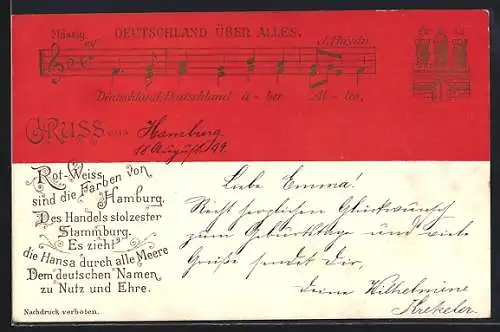 DEUTSCHLAND ÜBER ALLES.
Mässig. mf J. Haydn.
Deutschland, Deutschland ü - ber Al - les,
GRUSS aus Hamburg
18 August 99.
Rot-Weiss
sind die Farben von
Hamburg,
Des Handels stolzester
Stammburg.
Es zieht
die Hansa durch alle Meere
Dem deutschen Namen
zu Nutz und Ehre.
Nachdruck verboten.
Liebe Emma!
Recht herzlichen Glückwünsch
zum Geburtstage und viele
Grüße sendet Dir,
Deine Wilhelmine
Krekeler.